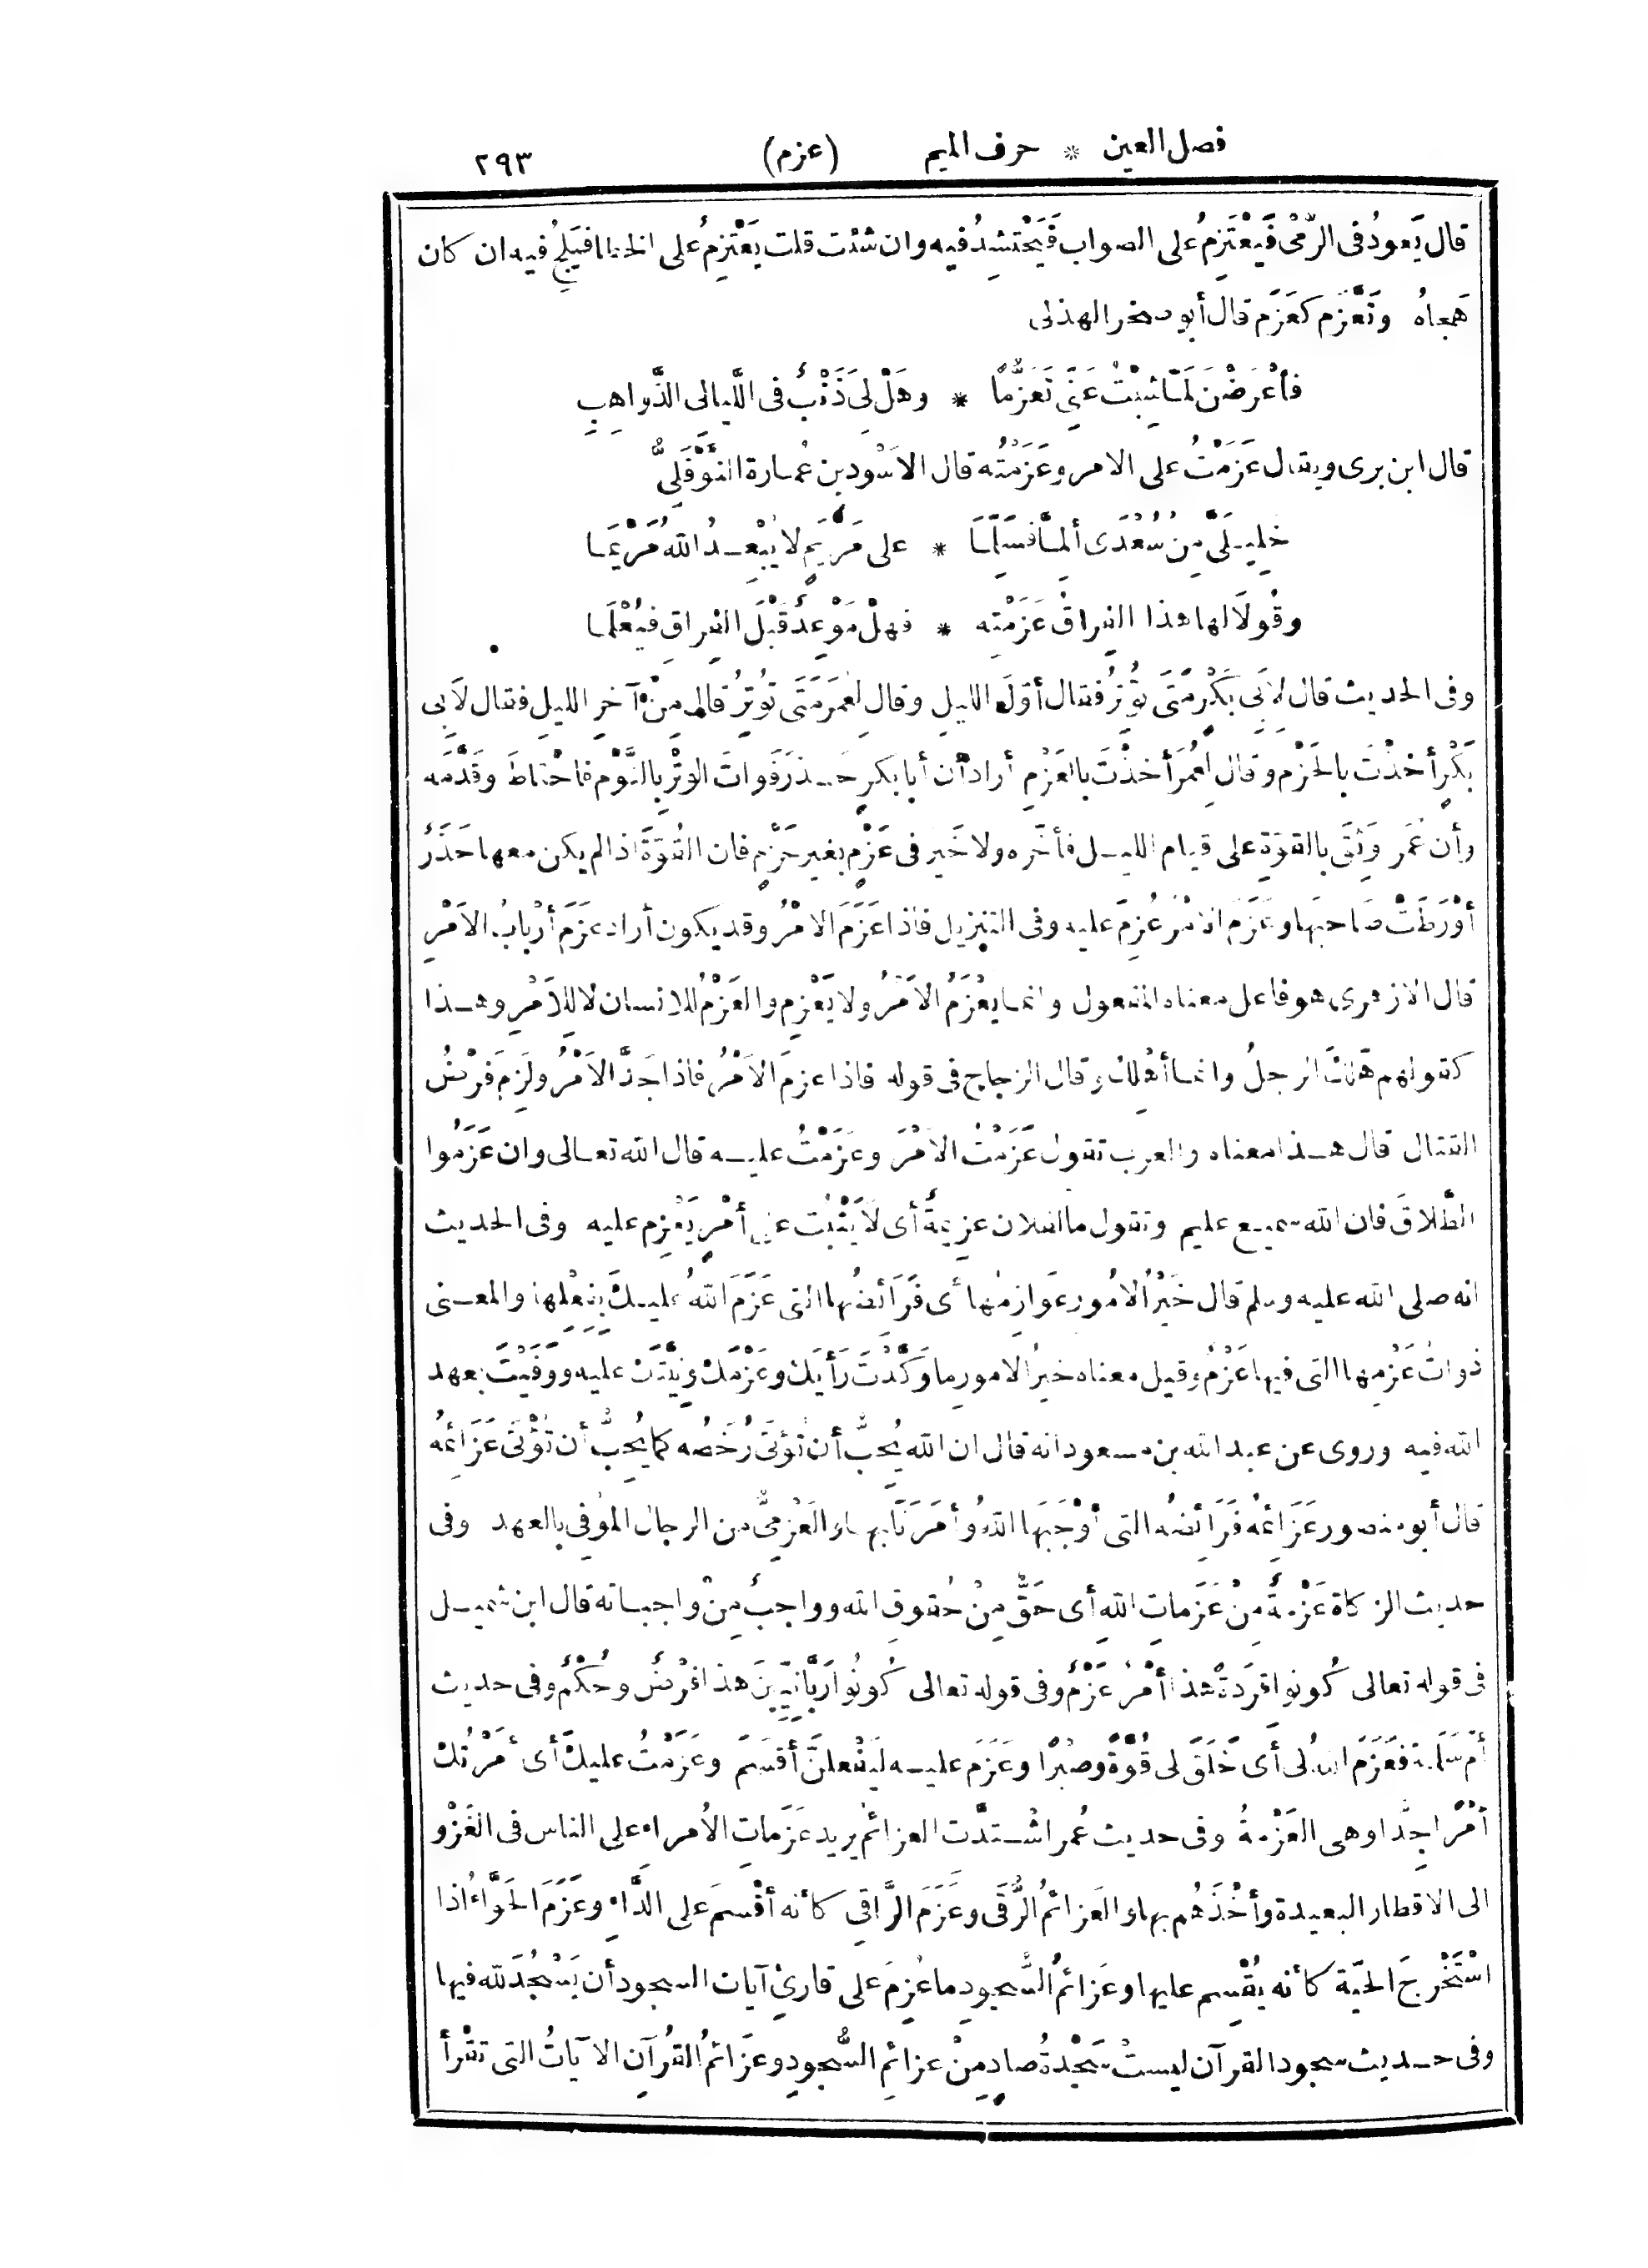 فصل العين * حرف الميم (عزم) ٢٩٣
قال يَعودُ فى الرَّمْىِ فَيَعْتَزِمُ على الصواب فَيَحْتَشِدُ فيه وان شئت قلت يَعْتَزِمُ على الخطا فيَلِجُّ فيه ان كان
هَجاهُ وتَعَزَّم كعَزَم قال أبو صخر الهذلى
فأعْرَضْنَ لَمَّا شِبْتُ عَنِّى تَعَزُّمًا * وهَلْ لِىَ ذَنْبٌ فى اللَّيالى الذَّواهِبِ
قال ابن برى ويقال عَزَمْتُ على الامر وعَزَمْتُه قال الاَسْود بن عُمارة النَّوْفَلِىُّ
خَلِيلَىَّ مِنْ سُعْدَى ألِمَّا فسَلِّمَا * على مَرْيَمٍ لا يُبْعِدُ اللهُ مَرْيَمَا
وقُولَا لها هذا الفِراقُ عَزَمْتِه * فهلْ مَوْعِدٌ قَبْلَ الفِراقِ فيُعْلَما
وفى الحديث قال لاَبى بَكْرٍ مَتَى تُوتِرُ فقال أوّلَ الليلِ وقال لعُمَرَ مَتَى تُوتِرُ قال مِنْ آخرِ الليلِ فقال لاَبِى
بَكْرٍ أخَذْتَ بالحَزْم وقال لِعُمَرَ أخذْتَ بالعَزْمِ أراد أن أبا بكرٍ حَذِرَ فَواتَ الوِتْرِ بالنَّوْم فاحْتاطَ وقَدَّمَه
وأن عُمَر وَثِقَ بالقوّةِ على قيام الليل فأخّره ولا خَيرَ فى عَزْمٍ بغير حَزْمٍ فان القُوّةَ اذا لم يكن معها حَذَرٌ
أوْرَطَتْ صَاحبَها وعَزَمَ الاَمْرُ عُزِمَ عليه وفى التنزيل فاذا عَزَمَ الاَمْرُ وقد يكون أراد عَزَمَ أرْبابُ الاَمْرِ
قال الازهرى هو فاعل معناه المفعول وانما يُعْزَمُ الاَمْرُ ولا يَعْزِم والعَزْمُ للانسان لا للاَمْرِ وهذا
كقولهم هَلَكَ الرجلُ وانما أُهْلِك وقال الزجاج فى قوله فاذا عزمَ الاَمْرُ فاذا جَدَّ الاَمْرُ ولَزِمَ فَرْضُ
القتال قال هذا معناه والعرب تقول عَزَمْتُ الاَمْرَ وعَزَمْتُ عليه قال الله تعالى وان عَزَمُوا
الطَّلاقَ فان الله سميع عليم وتقول ما لفلان عزِيمةٌ أى لا يَثْبُت على أمْرٍ يَعْزِم عليه وفى الحديث
انه صلى الله عليه وسلم قال خَيْرُ الاُمُورِ عَوازِمُها أى فَرَائضُها التى عَزَمَ اللهُ عليكَ بِفِعْلِها والمعنى
ذواتُ عَزْمِها التى فيها عَزْمٌ وقيل معناه خيرُ الامورِ ما وَكَّدْتَ رَأيَكَ وعَزْمَك ونِيَّتَك عليه ووَفَيْتَ بعهد
الله فيه وروى عن عبد الله بن مسعود انه قال ان الله يُحِبُّ أن تُؤتَى رُخَصُه كما يُحِبُّ أن تُؤْتَى عَزَائِمُه
قال أبو منصور عَزَائِمُه فَرَائِضُه التى أوْجَبَها اللهُ وأمَرَنَا بها والعَزْمِىُّ من الرجال المُوفِى بالعهد وفى
حديث الزكاة عَزْمةٌ مِنْ عَزَماتِ اللهِ أى حَقٌّ مِنْ حُقوقِ الله وواجبٌ مِنْ واجباته قال ابن شميل
فى قوله تعالى كُونوا قِرَدَةً هذا أمْرٌ عَزْمٌ وفى قوله تعالى كُونُوا رَبَّانِيِّينَ هذا فرْضٌ وحُكْمٌ وفى حديث
أمّ سَلَمة فعَزَمَ اللهُ لى أى خَلَقَ لى قُوَّةً وصَبْرًا وعَزَم عليه لَيَفْعلَنَّ أقسَمَ وعَزَمْتُ عليكَ أى أمَرْتُك
أمْرًا جِدًّا وهى العَزْمةُ وفى حديث عُمر اشْتدَّت العزائمُ يريد عَزَماتِ الاُمراء على الناس فى الغَزْو
الى الاقطار البعيدة وأخْذَهُم بها والعَزائمُ الرُّقَى وعَزَمَ الرَّاقِى كأنه أقْسمَ على الدَّاءِ وعَزَمَ الحَوَّاءُ اذا
اسْتَخْرجَ الحيّة كأنه يُقْسِم عليها وعَزائمُ السُّجودِ ما عُزِمَ على قارئ آيات السجود أن يَسْجُدَ لله فيها
وفى حديث سجود القرآن ليستْ سَجْدةُ صادٍ مِنْ عزائمِ السُّجودِ وعَزائمُ القُرآنِ الا آياتُ التى تقْرأ